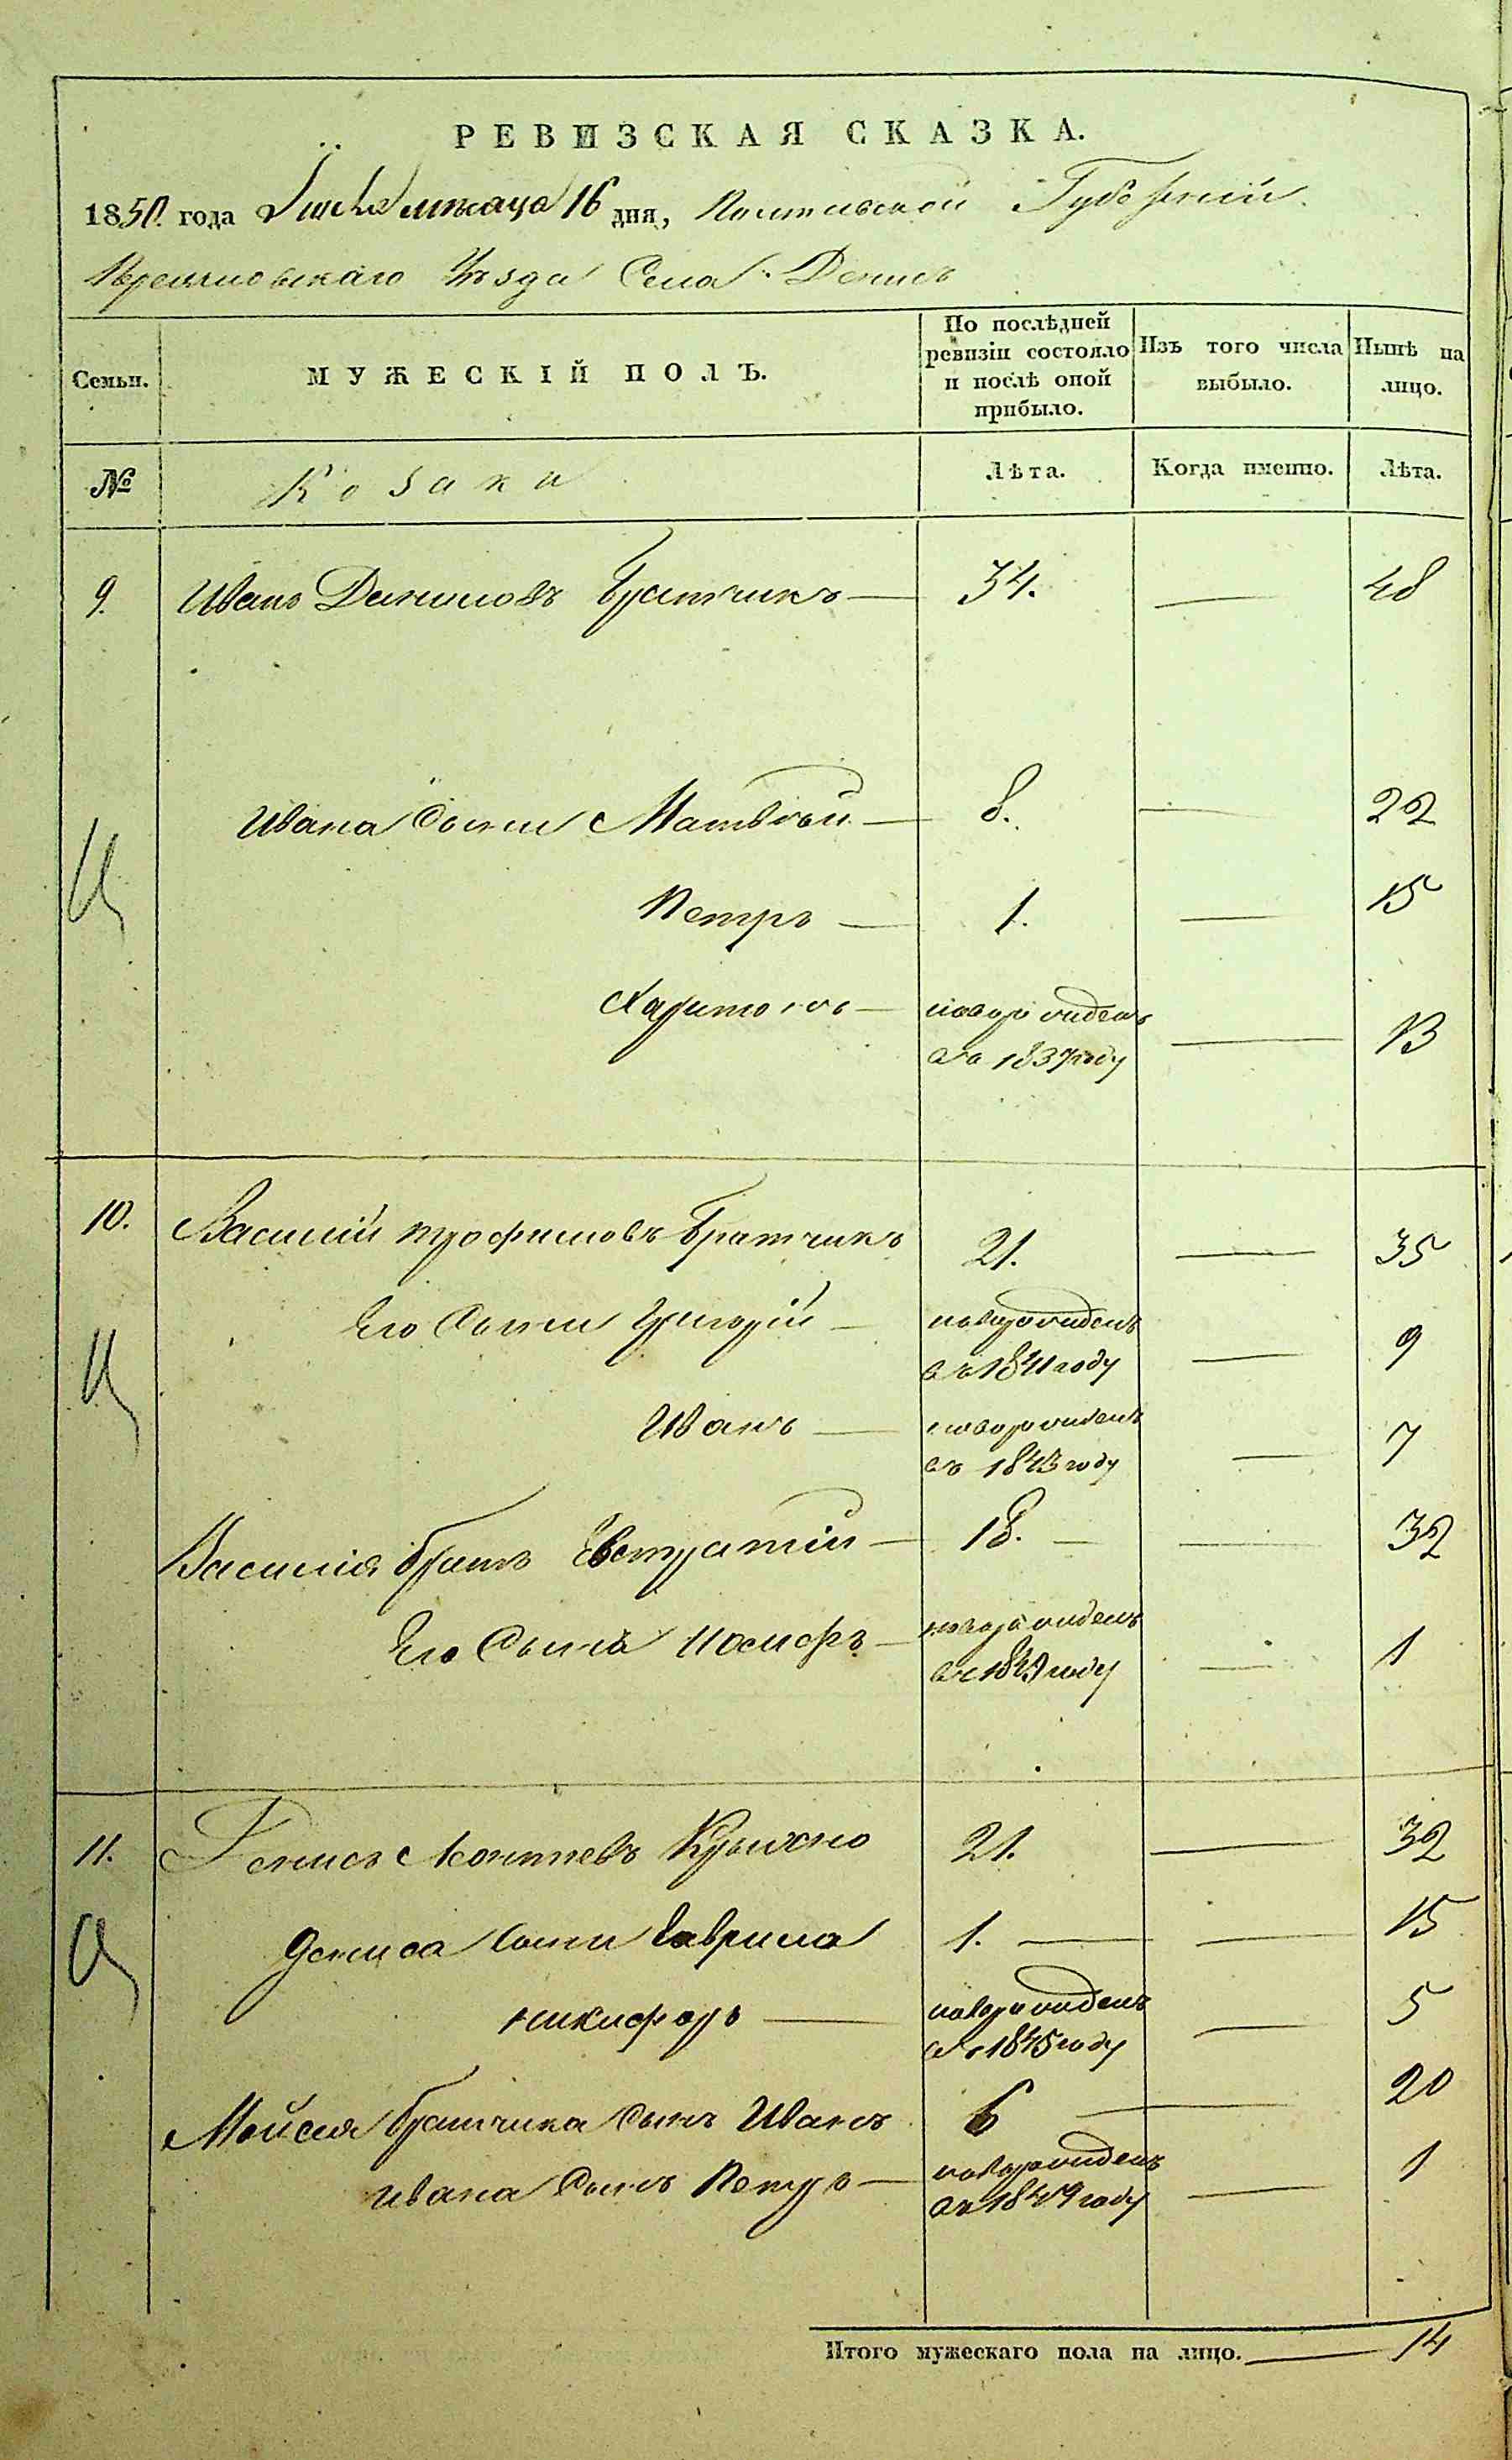 РЕВИЗСКАЯ СКАЗКА.
1850. года мѣсяца 16 дня, Полтавской Губерніи
Уѣзда Села Денисъ
Семьи.
МУЖЕСКІЙ ПОЛЪ.
По послѣдней ревизіи состояло и послѣ оной прибыло.
Изъ того числа выбыло.
Нынѣ на лицо.
№
Козаки
Лѣта.
Когда именно.
Лѣта.
9. Иванъ Даниловъ Братчикъ — 34. — 48
Ивана Сыни Матвѣй — 8. — 22
Петръ — 1. — 15
Харитонъ — новорожденъ — 13
въ 1837 году
10. Василій трофимовъ Братчикъ 21. — 35
Его Сыни Григорій — новорожденъ — 9
въ 1841 году
Иванъ — новорожденъ — 7
въ 1843 году
Василія братъ Евстратій — 18. — — 32
Его Сынъ Иосифъ — новорожденъ — 1
въ 1849 году
11. Денисъ Леонтіевъ 21. — 32
Дениса Сыни Гаврила 1. — — 15
никифоръ — новорожденъ — 5
въ 1845 году
Мойсея братчика Сынъ Иванъ 6 — 20
Ивана Сынъ Петръ — новорожденъ — 1
въ 1849 году
Итого мужескаго пола на лицо. — 14